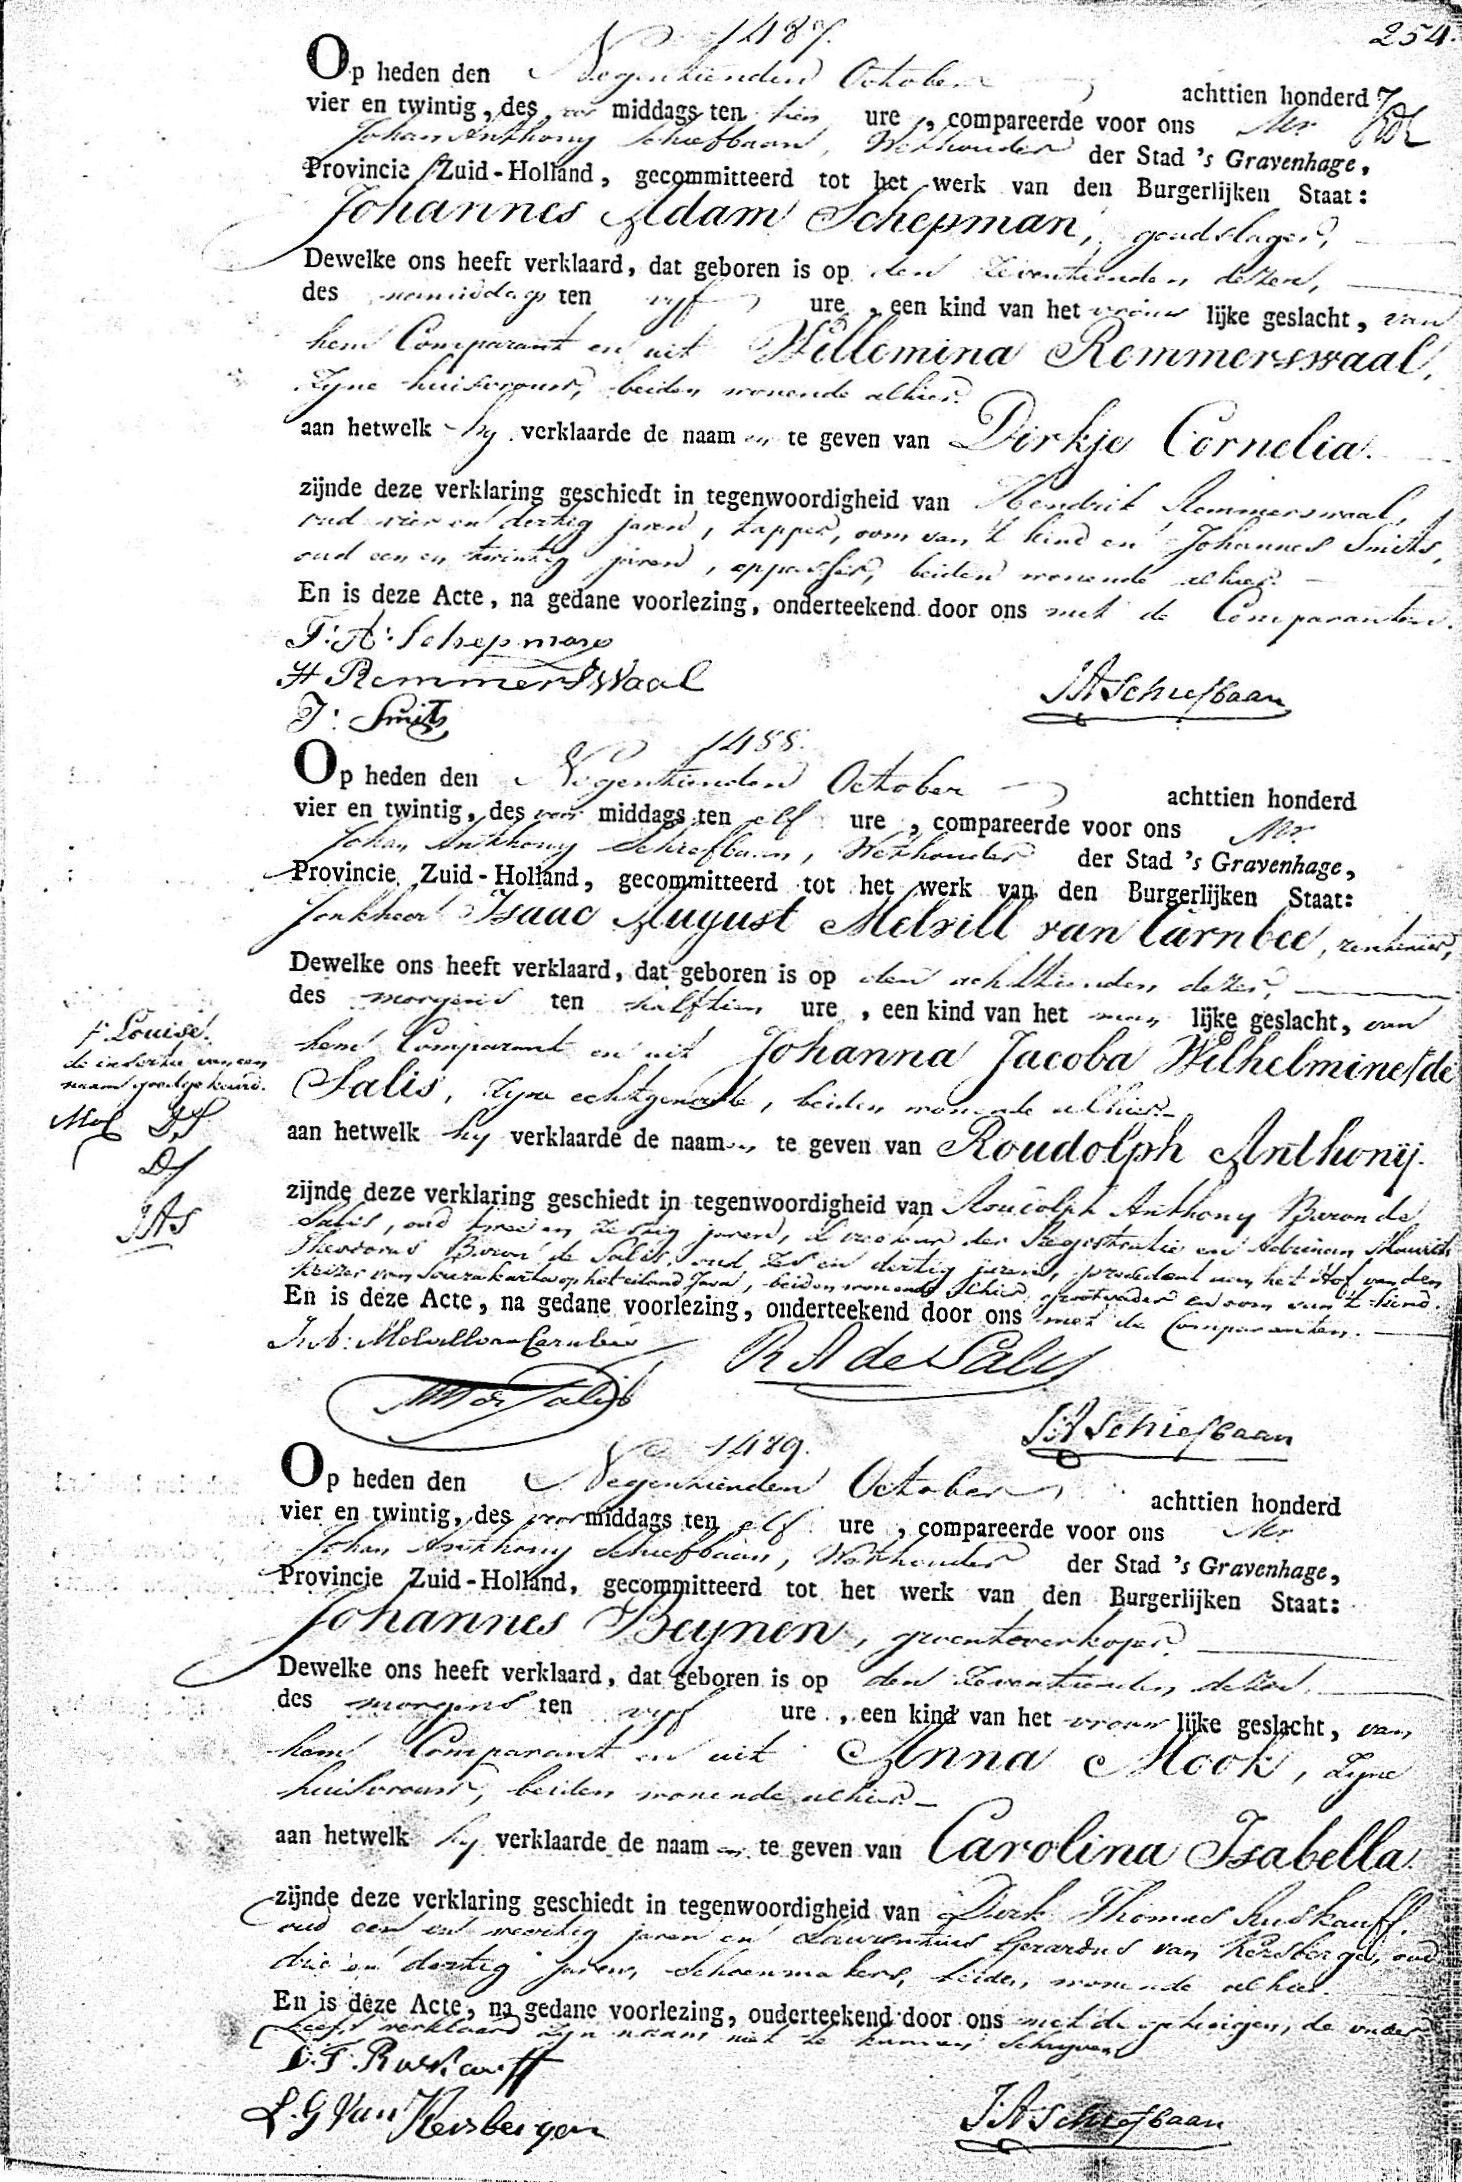 254.
1487.
Op heden den Negentienden October achttien honderd
vier en twintig, des voor middags ten tien ure, compareerde voor ons Mr.
Johan Anthony Schiefbaan, Wethouder der Stad 's Gravenhage,
Provincie Zuid-Holland, gecommitteerd tot het werk van den Burgerlijken Staat:
Johannes Adam Schepman, goudslager,
Dewelke ons heeft verklaard, dat geboren is op den zeventienden dezer,
des namiddags ten vyf ure, een kind van het vrouwlijke geslacht, van
hem Comparant en uit Willemina Remmerswaal,
zyne huisvrouw, beiden wonende alhier.
aan hetwelk hy verklaarde de naamen te geven van Dirkje Cornelia.
zijnde deze verklaring geschiedt in tegenwoordigheid van Hendrik Remmerswaal,
oud vier en dertig jaren, tapper, oom van 't kind en Johannes Smits,
oud een en twintig jaren, oppasser, beiden wonende alhier.
En is deze Acte, na gedane voorlezing, onderteekend door ons met de Comparanten.
J: A: Schepman
H Remmerswaal
J: Smits
JASchiefbaan
1488.
Op heden den Negentienden October achttien honderd
vier en twintig, des voor middags ten elf ure, compareerde voor ons Mr.
Johan Anthony Schiefbaan, Wethouder der Stad 's Gravenhage,
Provincie Zuid-Holland, gecommitteerd tot het werk van den Burgerlijken Staat:
Jonkheer Isaac August Melvill van Carnbee, rentenier,
Dewelke ons heeft verklaard, dat geboren is op den achttienden dezer,
des morgens ten halftien ure, een kind van het manlijke geslacht, van
hem Comparant en uit Johanna Jacoba Wilhelmine / de
Salis, zyne echtgenoote, beiden wonende alhier.
aan hetwelk hy verklaarde de naamen te geven van Roudolph Anthonij.
zijnde deze verklaring geschiedt in tegenwoordigheid van Roudolph Anthony Baron de
Salis, oud twee en zestig jaren, Directeur der Registratie en Adriaan Maurits
Theodorus Baron de Salis, oud zes en dertig jaren, president aan het Hof van den
keizer van Sourakarta op het eiland Java, beiden wonende alhier, grootvader en oom van 't kind.
En is deze Acte, na gedane voorlezing, onderteekend door ons met de Comparanten.
/: Louise.
de insertie van een
naam goedgekeurd.
JAS
Melvill van Carnbee
R A de Salis
de Salis
JASchiefbaan
1489.
Op heden den Negentienden October achttien honderd
vier en twintig, des voor middags ten elf ure, compareerde voor ons Mr
Johan Anthony Schiefbaan, Wethouder der Stad 's Gravenhage,
Provincie Zuid-Holland, gecommitteerd tot het werk van den Burgerlijken Staat:
Johannes Beynen, groenteverkoper
Dewelke ons heeft verklaard, dat geboren is op den zeventienden dezer
des morgens ten vyf ure, een kind van het vrouwlijke geslacht, van
hem Comparant en uit Anna Mook, zyne
huisvrouw, beiden wonende alhier.
aan hetwelk hy verklaarde de naamen te geven van Carolina Isabella.
zijnde deze verklaring geschiedt in tegenwoordigheid van Dirk Thomas Ruskauff,
oud een en veertig jaren en Laurentius Gerardus van Kersbergen, oud
drie en dertig jaren, schoenmakers, beiden wonende alhier.
En is deze Acte, na gedane voorlezing, onderteekend door ons met de getuigen, de vader
heeft verklaard zyn naam niet te kunnen schryven
D. T. Ruskauff
L. G Van Kersbergen
J:A:Schiefbaan